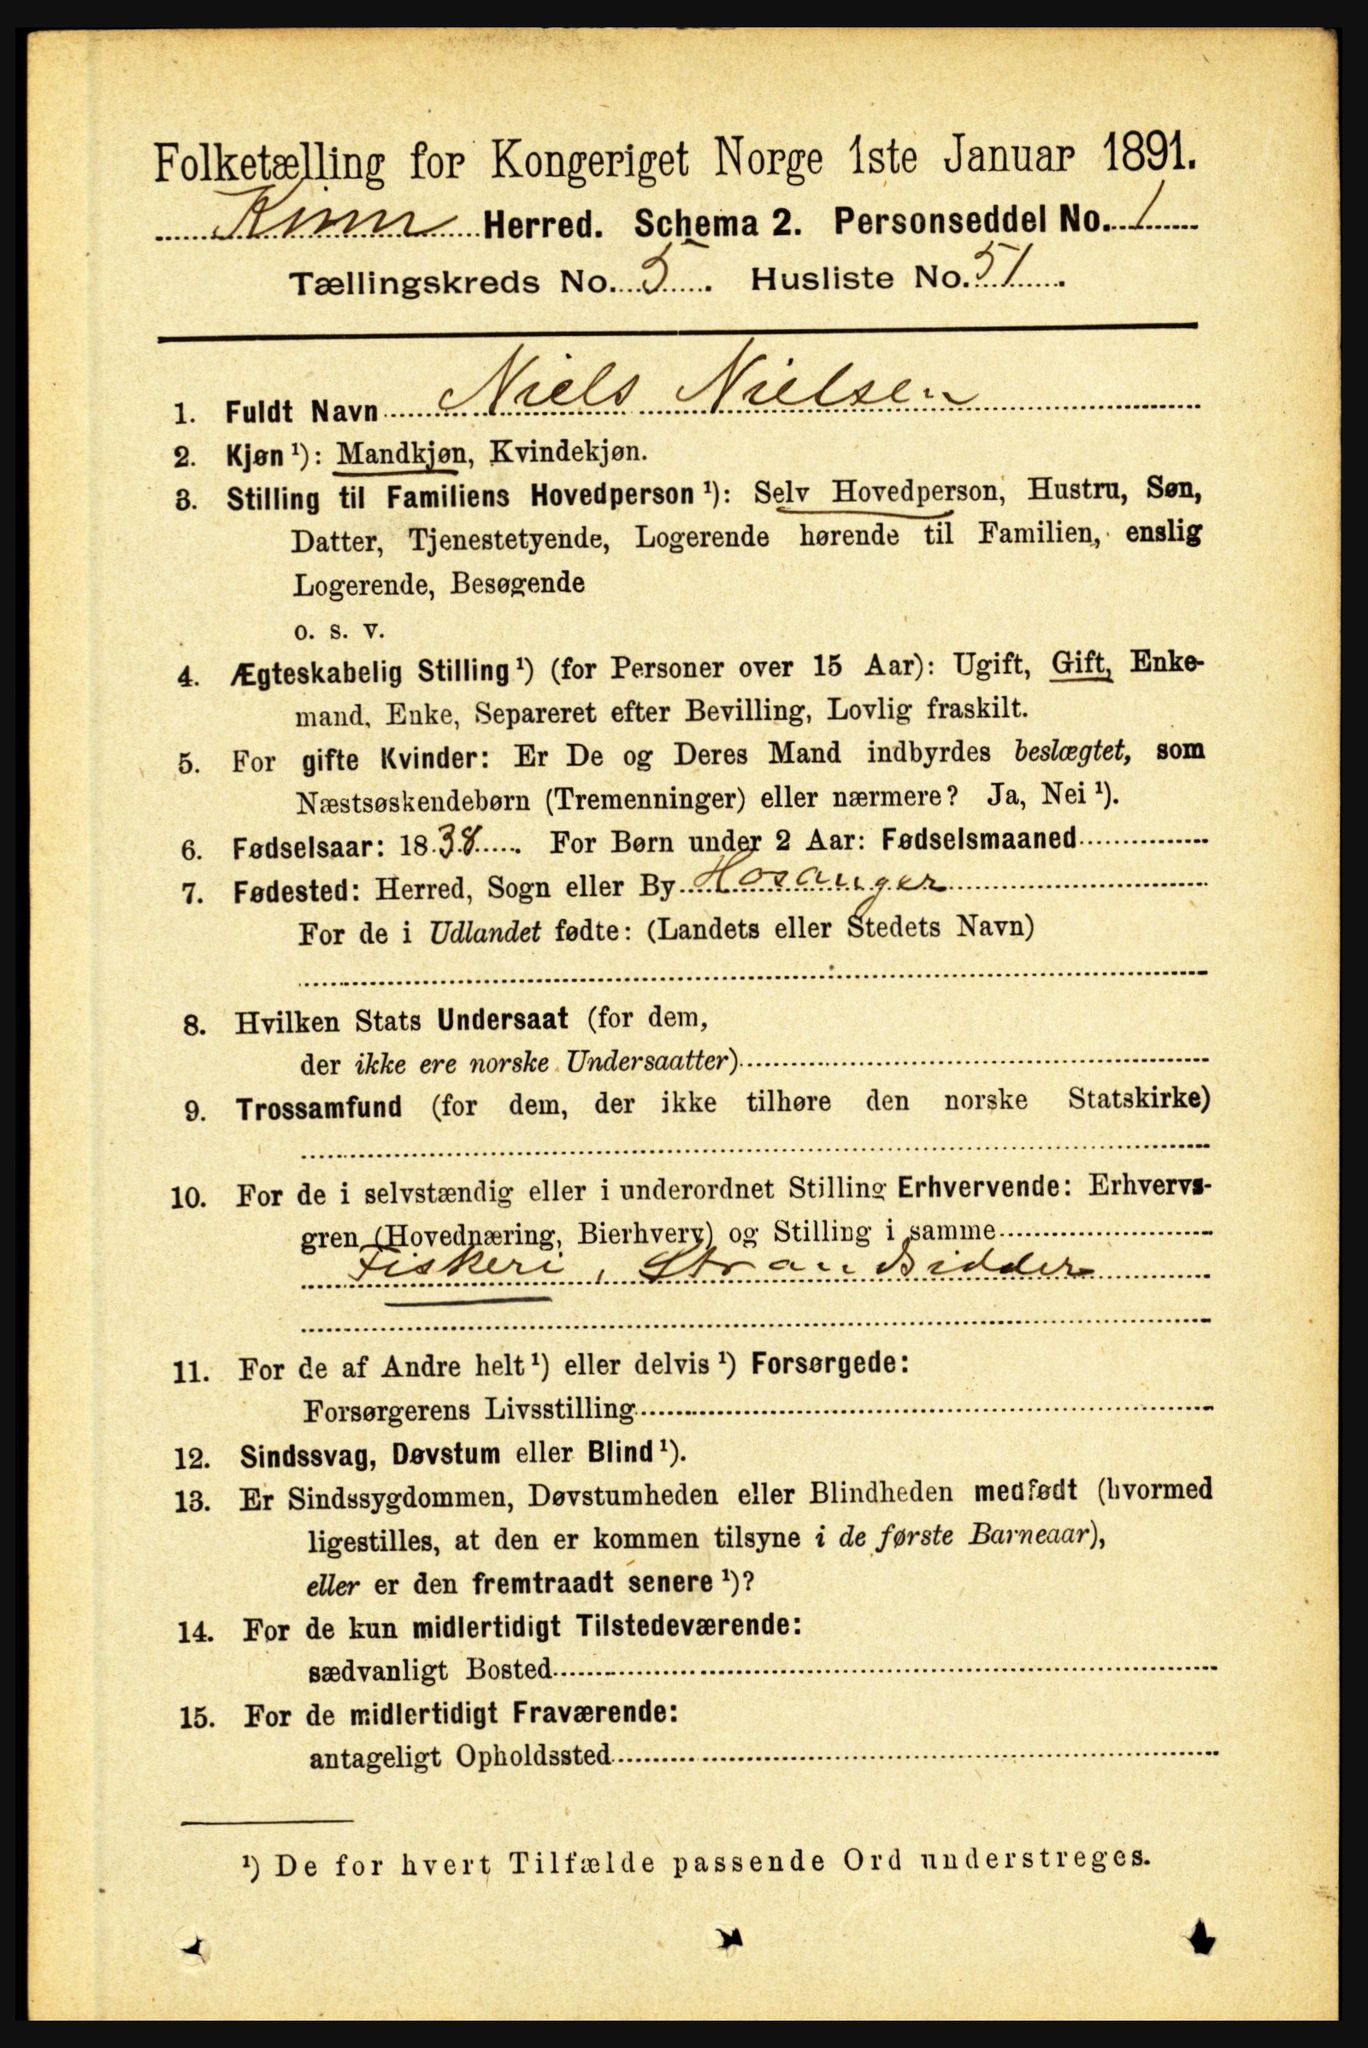 Folketælling for Kongeriget Norge 1ste Januar 1891.
Kinn Herred. Schema 2. Personseddel No. 1
Tællingskreds No. 5. Husliste No. 51.
1. Fuldt Navn Niels Nielsen
2. Kjøn¹): Mandkjøn, Kvindekjøn.
3. Stilling til Familiens Hovedperson¹): Selv Hovedperson, Hustru, Søn,
Datter, Tjenestetyende, Logerende hørende til Familien, enslig
Logerende, Besøgende
o. s. v.
4. Ægteskabelig Stilling¹) (for Personer over 15 Aar): Ugift, Gift, Enke-
mand, Enke, Separeret efter Bevilling, Lovlig fraskilt.
5. For gifte Kvinder: Er De og Deres Mand indbyrdes beslægtet, som
Næstsøskendebørn (Tremenninger) eller nærmere? Ja, Nei¹).
6. Fødselsaar: 1838. For Børn under 2 Aar: Fødselsmaaned
7. Fødested: Herred, Sogn eller By Hosanger
For de i Udlandet fødte: (Landets eller Stedets Navn)
8. Hvilken Stats Undersaat (for dem,
der ikke ere norske Undersaatter)
9. Trossamfund (for dem, der ikke tilhøre den norske Statskirke)
10. For de i selvstændig eller i underordnet Stilling Erhvervende: Erhvervs-
gren (Hovednæring, Bierhverv) og Stilling i samme
Fiskeri, Strandsidder
11. For de af Andre helt¹) eller delvis¹) Forsørgede:
Forsørgerens Livsstilling
12. Sindssvag, Døvstum eller Blind¹).
13. Er Sindssygdommen, Døvstumheden eller Blindheden medfødt (hvormed
ligestilles, at den er kommen tilsyne i de første Barneaar),
eller er den fremtraadt senere¹)?
14. For de kun midlertidigt Tilstedeværende:
sædvanligt Bosted
15. For de midlertidigt Fraværende:
antageligt Opholdssted
¹) De for hvert Tilfælde passende Ord understreges.